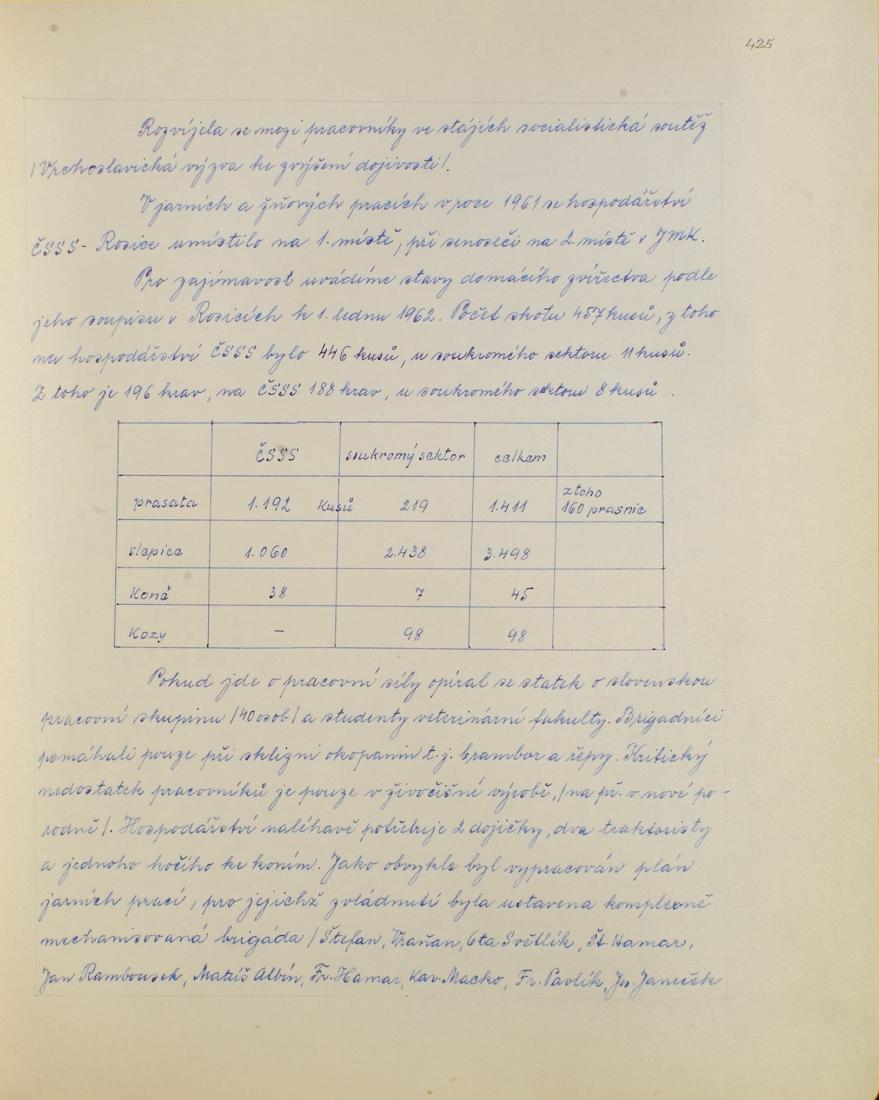 425
Rozvíjela se mezi pracovníky ve stájích socialistická soutěž
/Vrchoslavická výzva ke zvýšení dojivosti/.
V jarních a žňových pracích v roce 1961 se hospodářství
ČSSS - Rosice umístilo na 1. místě, při senoseči na 2. místě v JMK.
Pro zajímavost uvádíme stavy domácího zvířectva podle
jeho soupisu v Rosicích k 1. lednu 1962. Počet skotu 457 kusů, z toho
na hospodářství ČSSS bylo 446 kusů, u soukromého sektoru 11 kusů.
Z toho je 196 krav, na ČSSS 188 krav, u soukromého sektoru 8 kusů.
ČSSS soukromý sektor celkem
prasata 1.192 kusů 219 1.411 z toho 160 prasnic
slepice 1.060 2.438 3.498
Koně 38 7 45
Kozy - 98 98
Pokud jde o pracovní síly opíral se statek o slovenskou
pracovní skupinu /40 osob/ a studenty veterinární fakulty. Brigádníci
pomáhali pouze při sklizni okopanin t.j. brambor a řepy. Kritický
nedostatek pracovníků je pouze v živočišné výrobě, /na př. v nové po-
rodně/. Hospodářství naléhavě potřebuje 2 dojičky, dva traktoristy
a jednoho kočího ke koním. Jako obvykle byl vypracován plán
jarních prací, pro jejichž zvládnutí byla ustavena komplexně
mechanisovaná brigáda /Štefan, Vraňan, Ota Světlík, Št. Hamar,
Jan Rambousek, Matúš Albín, Fr. Hamar, Kar. Macko, Fr. Pavlík, Jos. Janeček